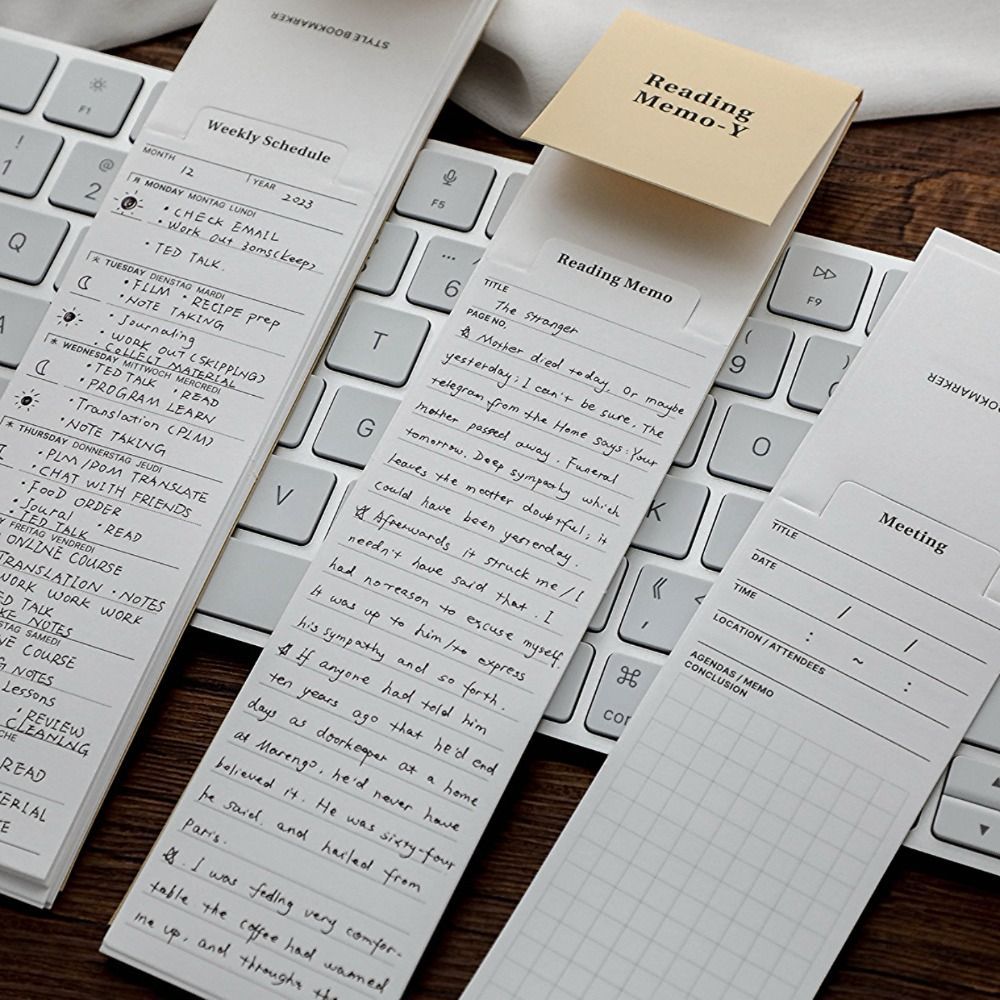 STYLE BOOKMARKER
Weekly Schedule
MONTH 12 YEAR 2023
MONDAY MONTAG LUNDI
• CHECK EMAIL
• Work out 30ms(keep)
• TED TALK.
TUESDAY DIENSTAG MARDI
• FILM • RECIPE prep
• NOTE TAKING
• Journaling
• WORK OUT (SKIPPING)
• COLLECT MATERIAL
WEDNESDAY MITTWOCH MERCREDI
• TED TALK • READ
• PROGRAM LEARN
• Translation (PLM)
• NOTE TAKING
THURSDAY DONNERSTAG JEUDI
• PLM/DOM TRANSLATE
• CHAT WITH FRIENDS
• FOOD ORDER
• Joural
TED TALK • READ
FREITAG VENDREDI
ONLINE COURSE
TRANSLATION • NOTES
WORK WORK WORK
TALK
NOTES
SAMEDI
COURSE
NOTES
Lessons
• REVIEW
CLEANING
READ
Reading
Memo-Y
Reading Memo
TITLE The Stranger
PAGE NO.
Mother died today. Or maybe
yesterday; I can't be sure. The
telegram from the Home says: Your
mother passed away. Funeral
tomorrow. Deep sympathy which
leaves the matter doubtful; it
could have been yesterday.
Afterwards it struck me / I
needn't have said that. I
had no reason to excuse myself.
It was up to him / to express
his sympathy and so forth.
If anyone had told him
ten years ago that he'd end
days as doorkeeper at a home
at Marengo, he'd never have
believed it. He was sixty-four
he said, and hailed from
Paris.
I was feeling very comfor-
table the coffee had warmed
me up, and through the
BOOKMARKER
Meeting
TITLE
DATE / /
TIME : ~ :
LOCATION / ATTENDEES
AGENDAS / MEMO
CONCLUSION
F1
F5
F9
!
1
@
2
Q
A
6
T
G
V
(
9
O
K
,
⌘